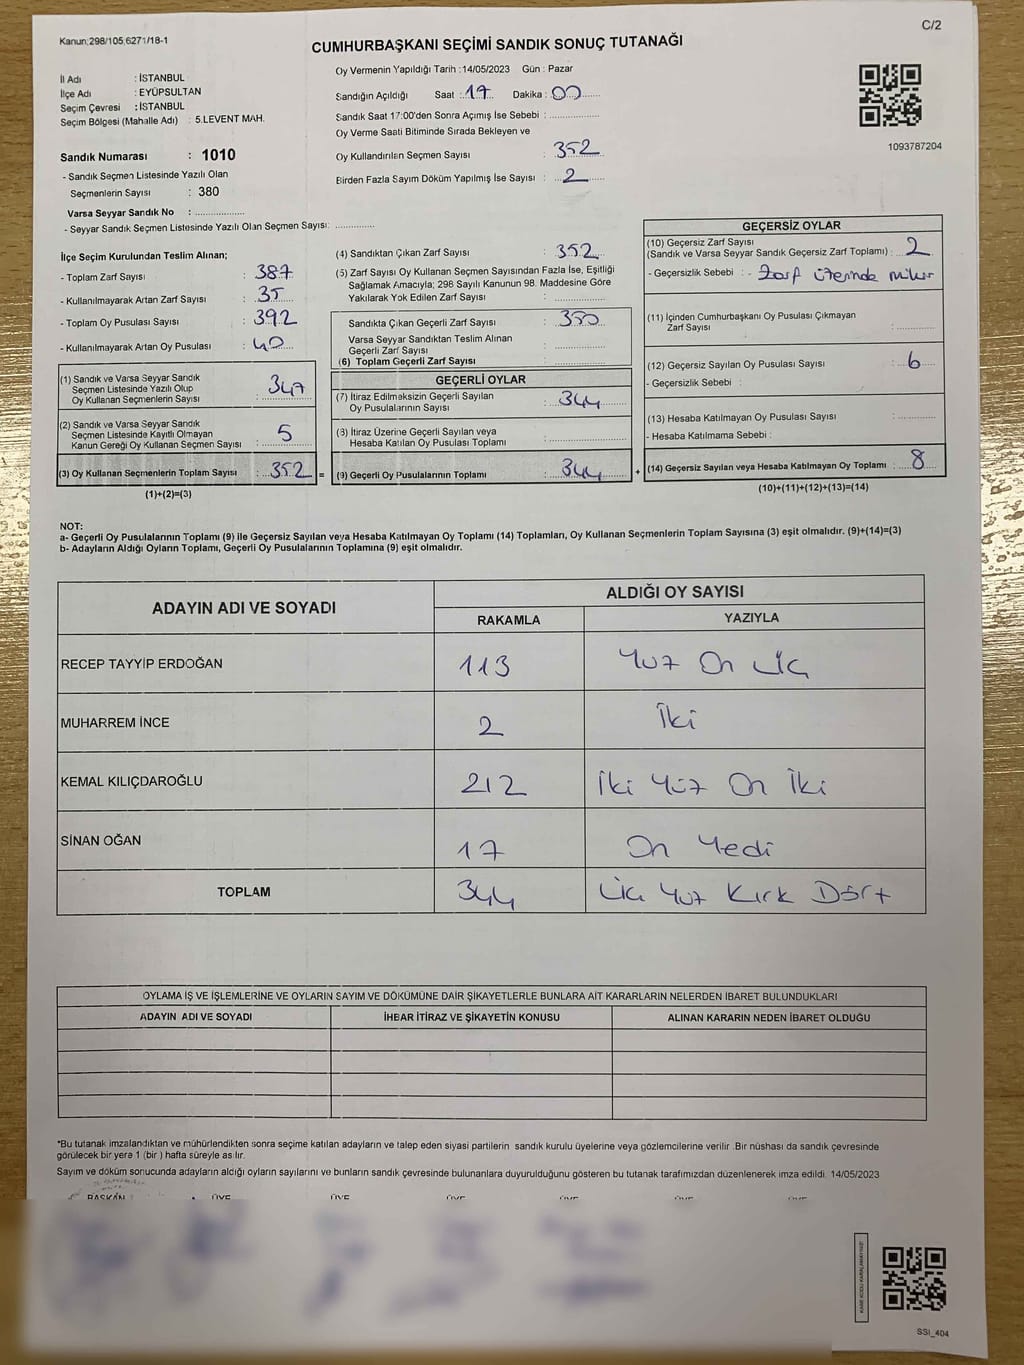 Kanun:298/105,6271/18-1
C/2
CUMHURBAŞKANI SEÇİMİ SANDIK SONUÇ TUTANAĞI
İl Adı : İSTANBUL
İlçe Adı : EYÜPSULTAN
Seçim Çevresi : İSTANBUL
Seçim Bölgesi (Mahalle Adı) : 5.LEVENT MAH.
Sandık Numarası : 1010
- Sandık Seçmen Listesinde Yazılı Olan
Seçmenlerin Sayısı : 380
Varsa Seyyar Sandık No : ....................
- Seyyar Sandık Seçmen Listesinde Yazılı Olan Seçmen Sayısı: ................
Oy Vermenin Yapıldığı Tarih : 14/05/2023 Gün : Pazar
Sandığın Açıldığı Saat : 17 Dakika : 00
Sandık Saat 17:00'den Sonra Açımış İse Sebebi : ................
Oy Verme Saati Bitiminde Sırada Bekleyen ve
Oy Kullandırılan Seçmen Sayısı : 352
Birden Fazla Sayım Döküm Yapılmış İse Sayısı : 2
1093787204
İlçe Seçim Kurulundan Teslim Alınan;
- Toplam Zarf Sayısı : 387
- Kullanılmayarak Artan Zarf Sayısı : 35
- Toplam Oy Pusulası Sayısı : 392
- Kullanılmayarak Artan Oy Pusulası : 40
(1) Sandık ve Varsa Seyyar Sandık
Seçmen Listesinde Yazılı Olup
Oy Kullanan Seçmenlerin Sayısı : 347
(2) Sandık ve Varsa Seyyar Sandık
Seçmen Listesinde Kayıtlı Olmayan
Kanun Gereği Oy Kullanan Seçmen Sayısı : 5
(3) Oy Kullanan Seçmenlerin Toplam Sayısı : 352 =
(1)+(2)=(3)
(4) Sandıktan Çıkan Zarf Sayısı : 352
(5) Zarf Sayısı Oy Kullanan Seçmen Sayısından Fazla İse, Eşitliği
Sağlamak Amacıyla; 298 Sayılı Kanunun 98. Maddesine Göre
Yakılarak Yok Edilen Zarf Sayısı : ................
Sandıkta Çıkan Geçerli Zarf Sayısı : 350
Varsa Seyyar Sandıktan Teslim Alınan
Geçerli Zarf Sayısı : ................
(6) Toplam Geçerli Zarf Sayısı : ................
GEÇERLİ OYLAR
(7) İtiraz Edilmeksizin Geçerli Sayılan
Oy Pusulalarının Sayısı : 344
(8) İtiraz Üzerine Geçerli Sayılan veya
Hesaba Katılan Oy Pusulası Toplamı : ................
(9) Geçerli Oy Pusulalarının Toplamı : 344 +
GEÇERSİZ OYLAR
(10) Geçersiz Zarf Sayısı
(Sandık ve Varsa Seyyar Sandık Geçersiz Zarf Toplamı) : 2
- Geçersizlik Sebebi : - Zarf üzerinde mühür
(11) İçinden Cumhurbaşkanı Oy Pusulası Çıkmayan
Zarf Sayısı : ................
(12) Geçersiz Sayılan Oy Pusulası Sayısı : 6
- Geçersizlik Sebebi :
(13) Hesaba Katılmayan Oy Pusulası Sayısı : ................
- Hesaba Katılmama Sebebi :
(14) Geçersiz Sayılan veya Hesaba Katılmayan Oy Toplamı : 8
(10)+(11)+(12)+(13)=(14)
NOT:
a- Geçerli Oy Pusulalarının Toplamı (9) ile Geçersiz Sayılan veya Hesaba Katılmayan Oy Toplamı (14) Toplamları, Oy Kullanan Seçmenlerin Toplam Sayısına (3) eşit olmalıdır. (9)+(14)=(3)
b- Adayların Aldığı Oyların Toplamı, Geçerli Oy Pusulalarının Toplamına (9) eşit olmalıdır.
ADAYIN ADI VE SOYADI ALDIĞI OY SAYISI
RAKAMLA YAZIYLA
RECEP TAYYİP ERDOĞAN 113 Yüz On Üç
MUHARREM İNCE 2 İki
KEMAL KILIÇDAROĞLU 212 İki Yüz On İki
SİNAN OĞAN 17 On Yedi
TOPLAM 344 Üç Yüz Kırk Dört
OYLAMA İŞ VE İŞLEMLERİNE VE OYLARIN SAYIM VE DÖKÜMÜNE DAİR ŞİKAYETLERLE BUNLARA AİT KARARLARIN NELERDEN İBARET BULUNDUKLARI
ADAYIN ADI VE SOYADI İHBAR İTİRAZ VE ŞİKAYETİN KONUSU ALINAN KARARIN NEDEN İBARET OLDUĞU
*Bu tutanak imzalandıktan ve mühürlendikten sonra seçime katılan adayların ve talep eden siyasi partilerin sandık kurulu üyelerine veya gözlemcilerine verilir .Bir nüshası da sandık çevresinde
görülecek bir yere 1 (bir ) hafta süreyle asılır.
Sayım ve döküm sonucunda adayların aldığı oyların sayılarını ve bunların sandık çevresinde bulunanlara duyurulduğunu gösteren bu tutanak tarafımızdan düzenlenerek imza edildi. 14/05/2023
BAŞKAN ÜYE ÜYE ÜYE ÜYE ÜYE ÜYE
SSI_404